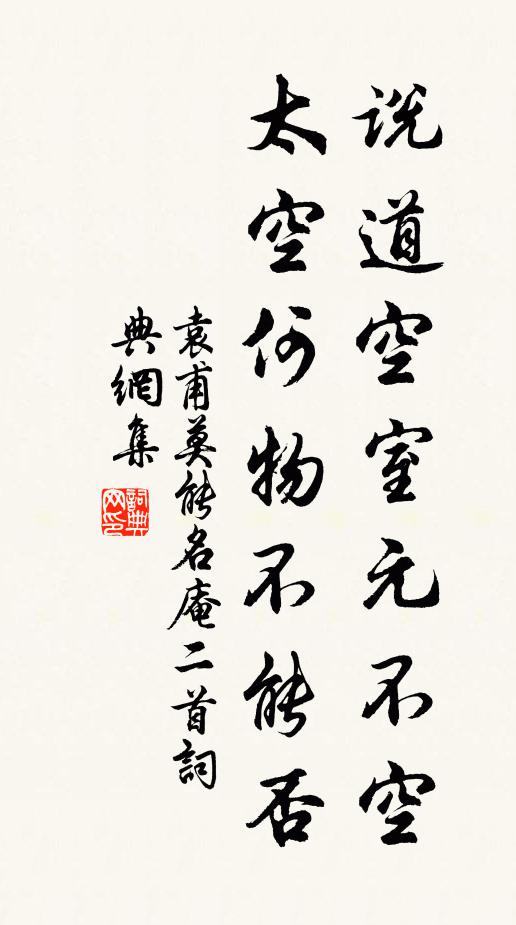 说道空室元不空
太空何物不能否
袁甫莫能名庵二首詞
典網集
詞典
网印